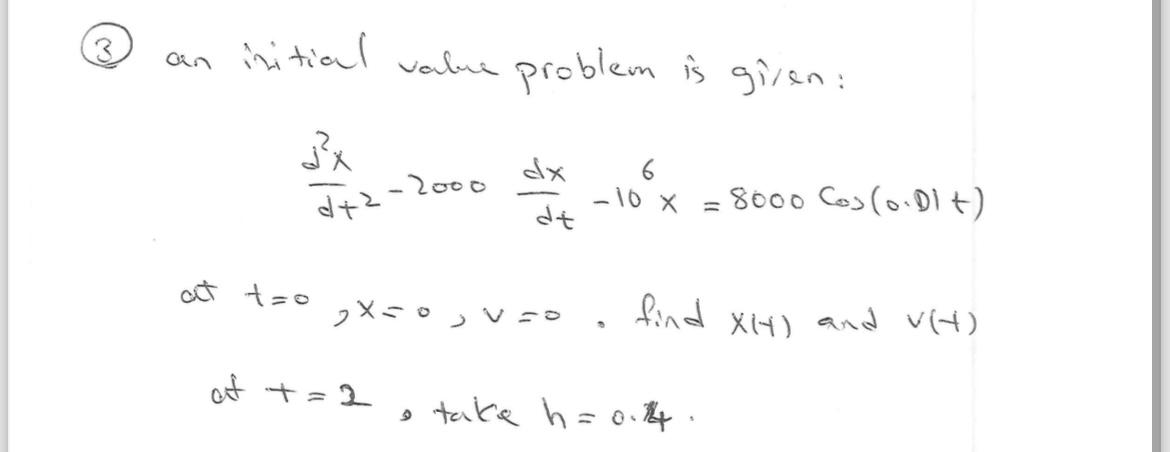 ③ an initial value problem is given:
d²x/dt² - 2000 dx/dt - 10⁶ x = 8000 Cos(0.01 t)
at t=0 , x=0 , v=0 . find x(t) and v(t)
at t=2 , take h=0.4 .